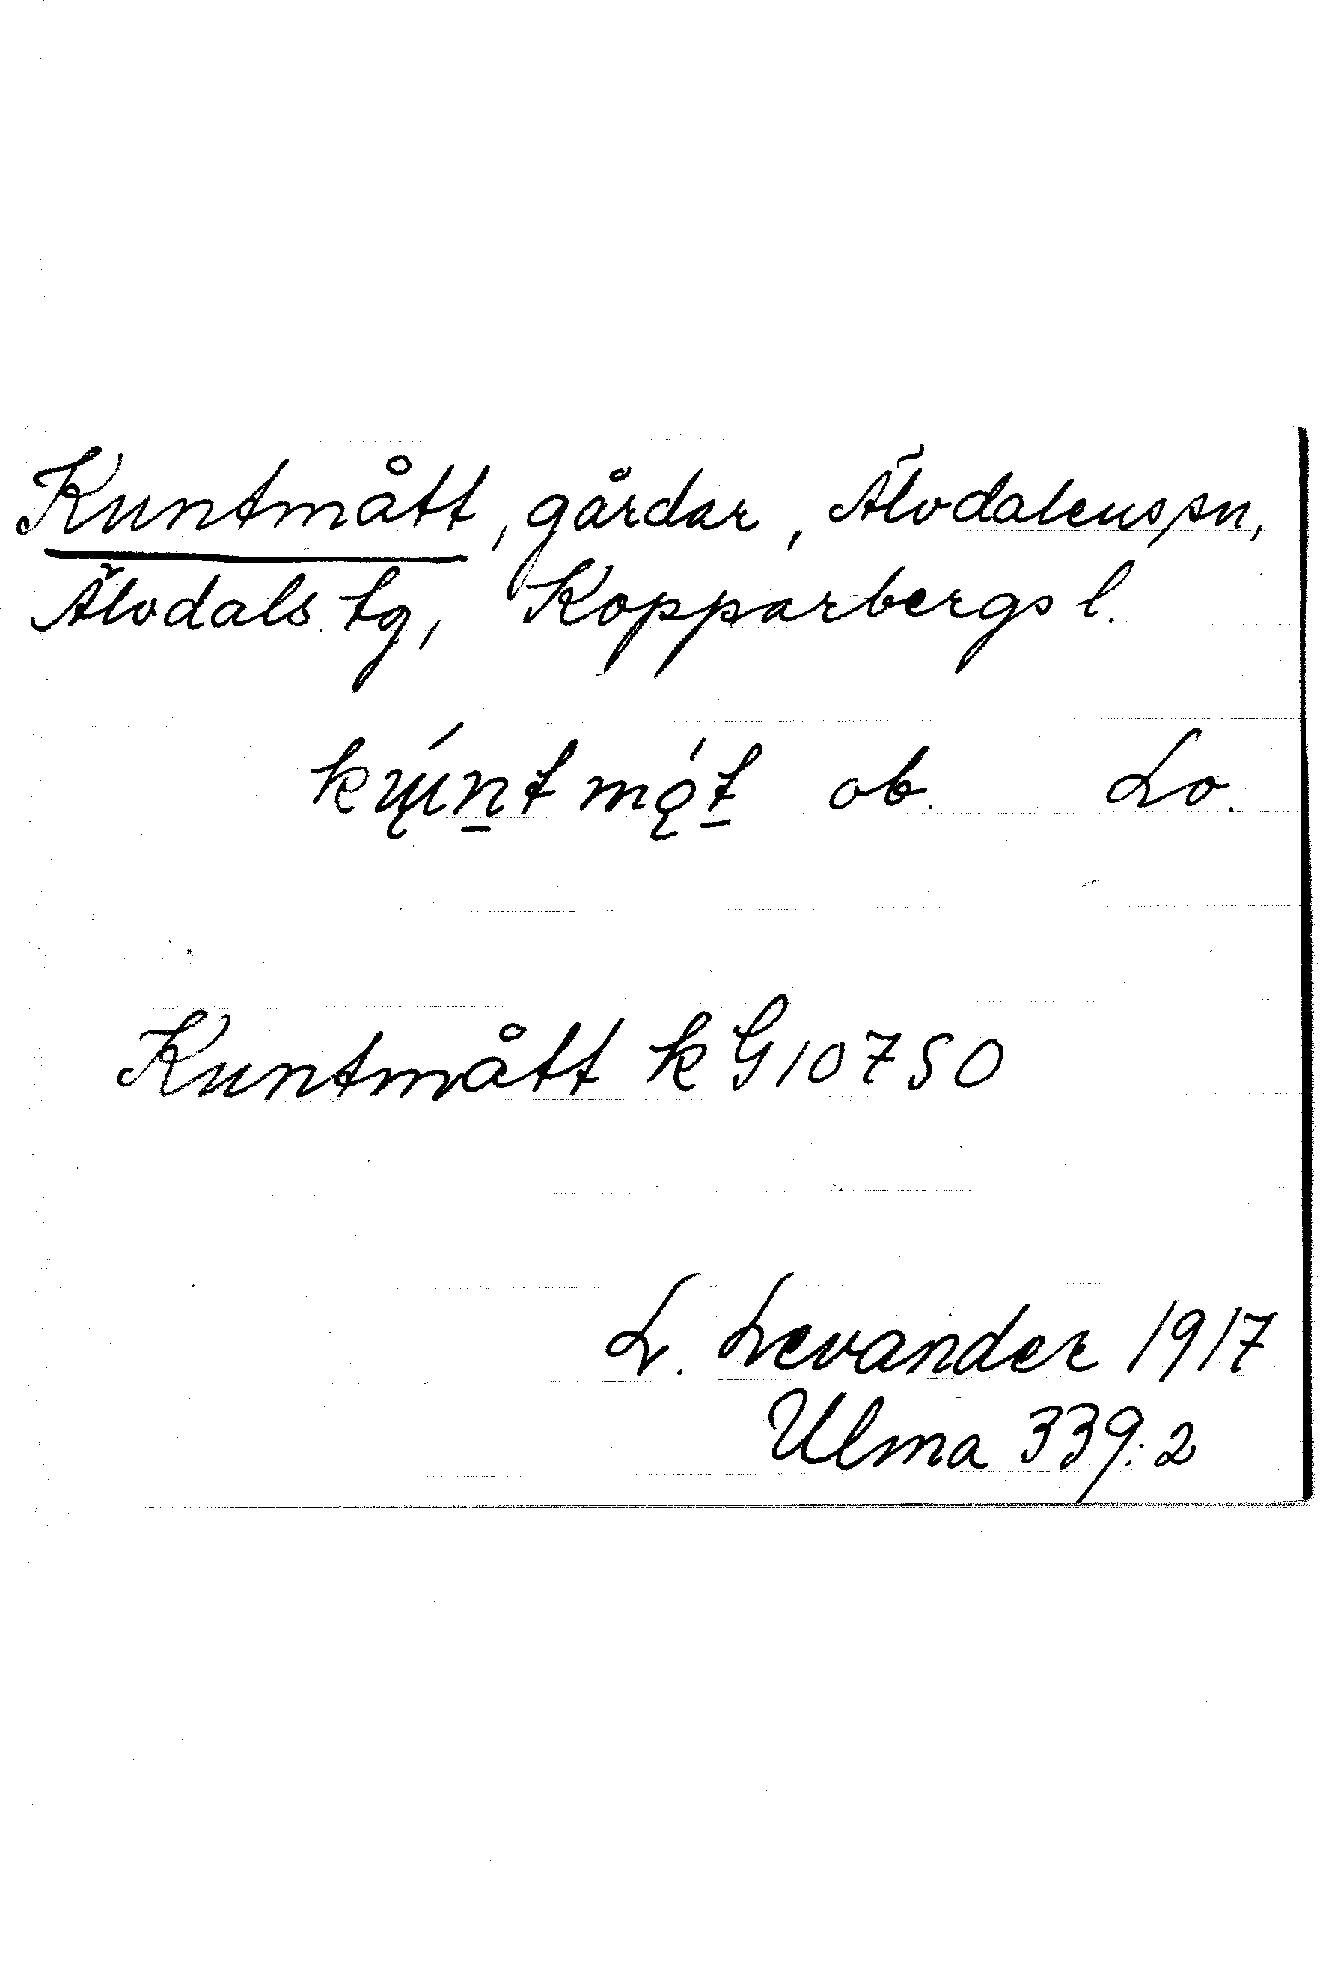 Kuntmått, gårdar, Älvdalens sn,
Älvdals tg, Kopparbergs l.
kų́ṉt mǫ́ṯ ob. Lo.
Kuntmått k G10750
L. Levander 1917
Ulma 339:2